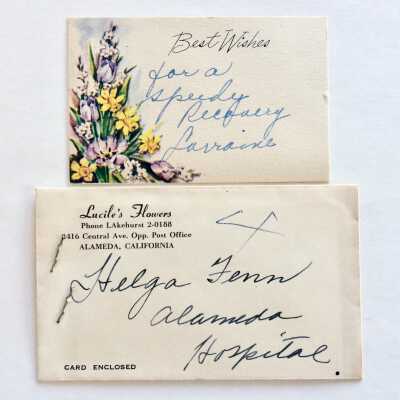 Best Wishes
for a
speedy
Recovery
Lorraine
Lucile's Flowers
Phone LAkehurst 2-0188
2416 Central Ave. Opp. Post Office
ALAMEDA, CALIFORNIA
Helga Fenn
Alameda
Hospital
CARD ENCLOSED